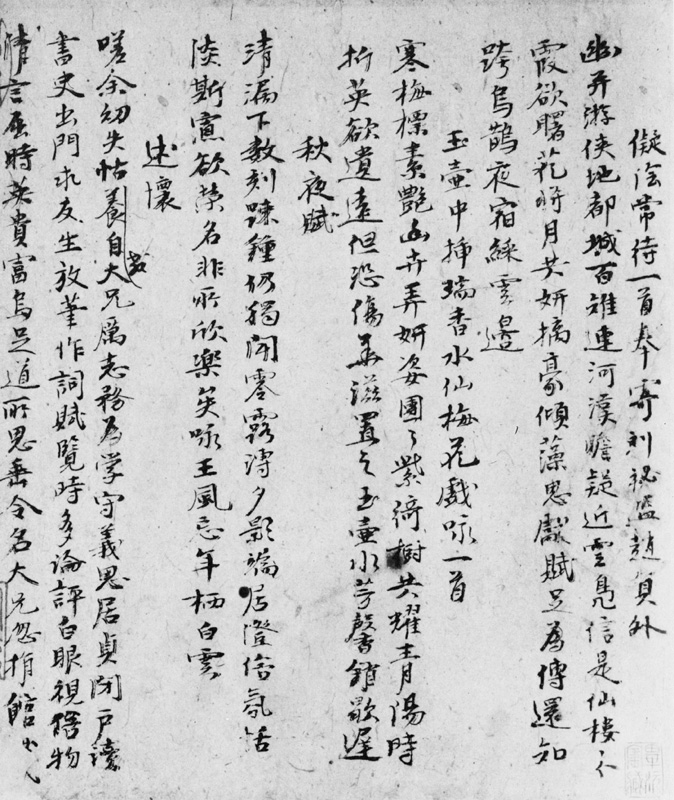 擬陰常待一首奉寄利秘監趙員外
幽并游俠地都城百雉連河漢瞻疑近雲鳧信是仙樓上
霞欲曙花將月共妍摛豪傾藻思獻賦足為傳還知
跨烏鵲夜宿綵雲邊
玉壺中插瑞香水仙梅花戲咏一首
寒梅標素艷幽卉弄妍姿團々紫綺樹共耀青陽時
折英欲遺遠但恐傷華滋置之玉壺水芳馨銷歇遲
秋夜賦
清漏下數刻疎鐘仍獨聞零露漙夕影端居澄俗氛恬
淡斯憲欲榮名非所欣樂矣咏王風忘年栖白雲
述懷
嗟余幼失怙養自大兄為志務為學守義思居貞閉戶讀
書史出門求友生放筆作詞賦覽時多論評白眼視俗物
清言屈時英貴富烏足道所思垂令名大兄忽捐館